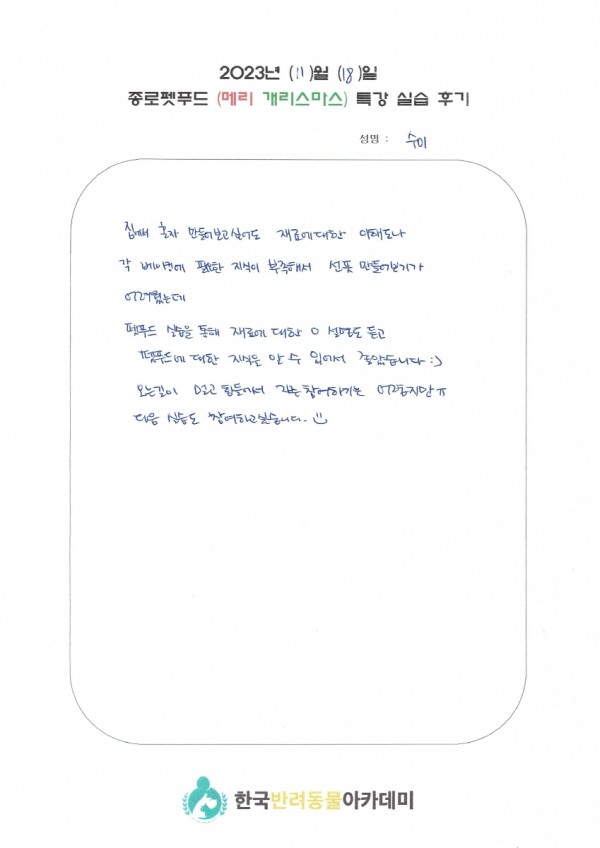 2023년 (11)월 (18)일
종로펫푸드 (메리 개리스마스) 특강 실습 후기
성명 : 수미
집에서 혼자 만들어보고싶어도 재료에대한 이해도나
각 베이컨에 필요한 지식이 부족해서 선뜻 만들어보기가
어려웠는데
펫푸드 실습을 통해 재료에 대한 설명도 듣고
펫푸드에 대한 지식은 알 수 있어서 좋았습니다 :)
오는길이 멀고 힘들어서 자주 참여하기는 어렵지만 ㅠ
다음 실습도 참여하고싶습니다.
한국반려동물아카데미